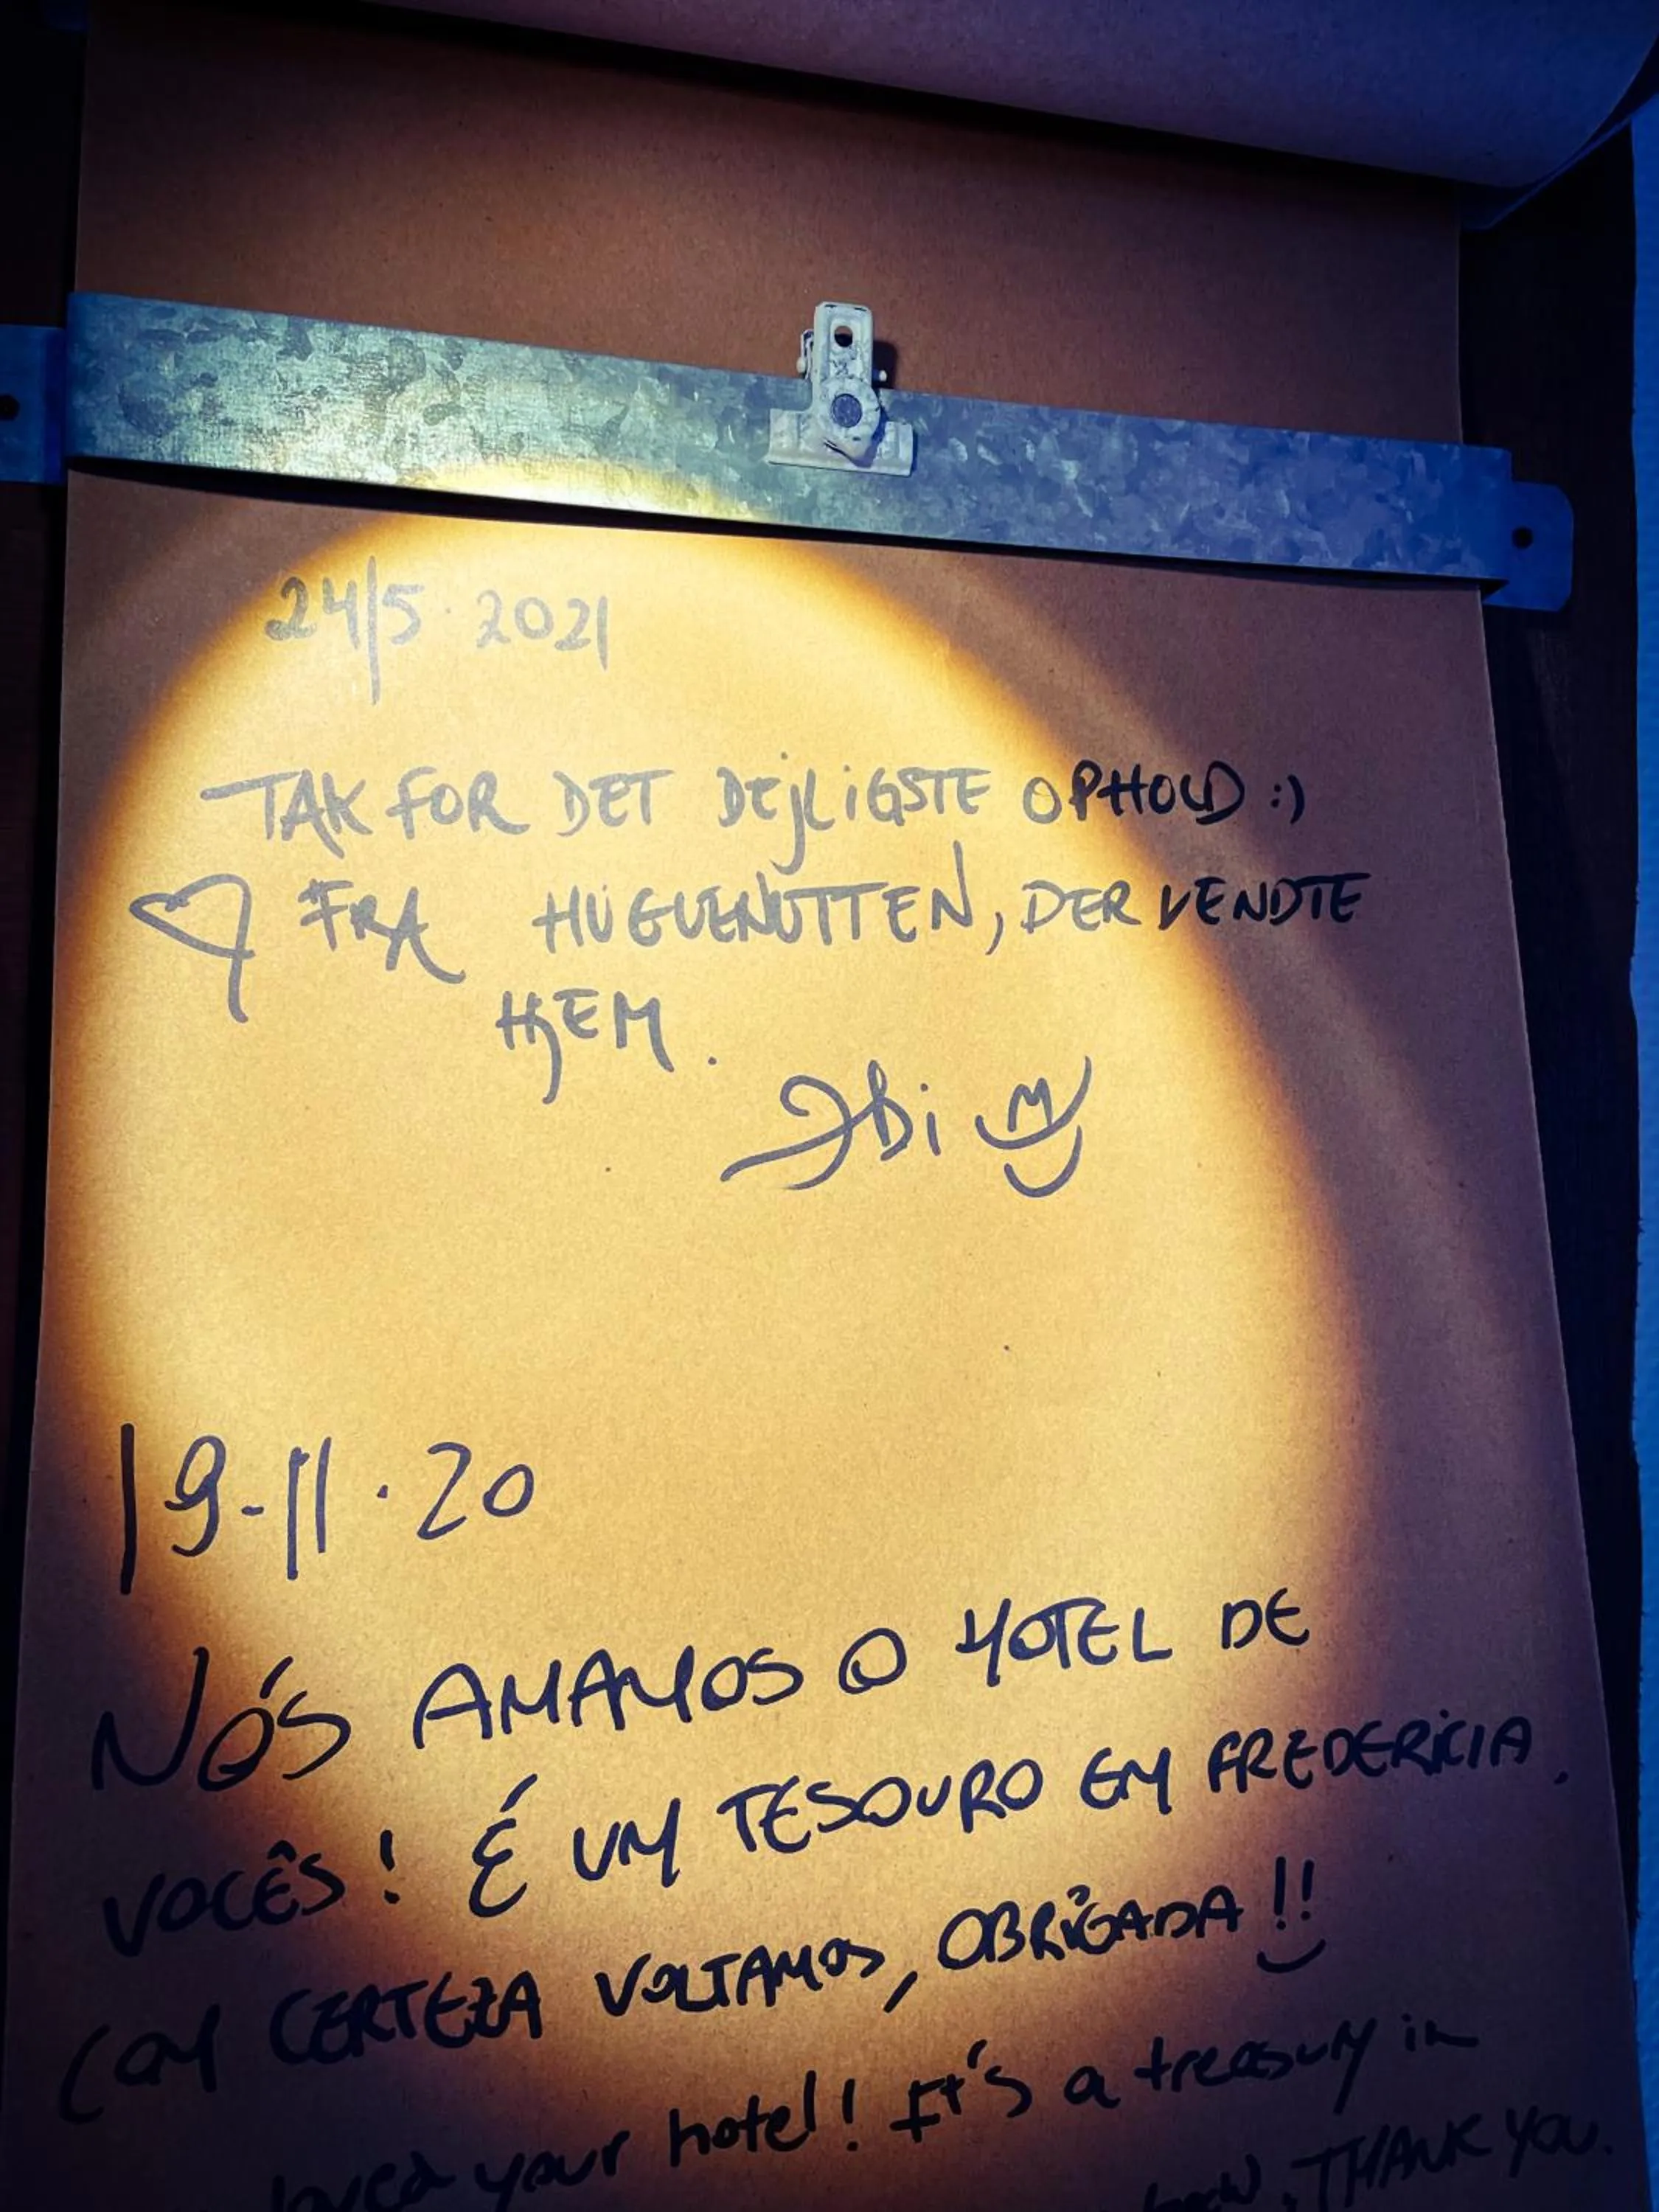 24/5 2021
TAK FOR DET DEJLIGSTE OPHOLD :)
♡ FRA HUGUENOTTEN, DER VENDTE
HJEM.
19-11.20
NÓS AMAMOS O HOTEL DE
VOCÊS! É UM TESOURO EM FREDERICIA.
COM CERTEZA VOLTAMOS, OBRIGADA!!
loved your hotel! It's a treasury in
THANK YOU.